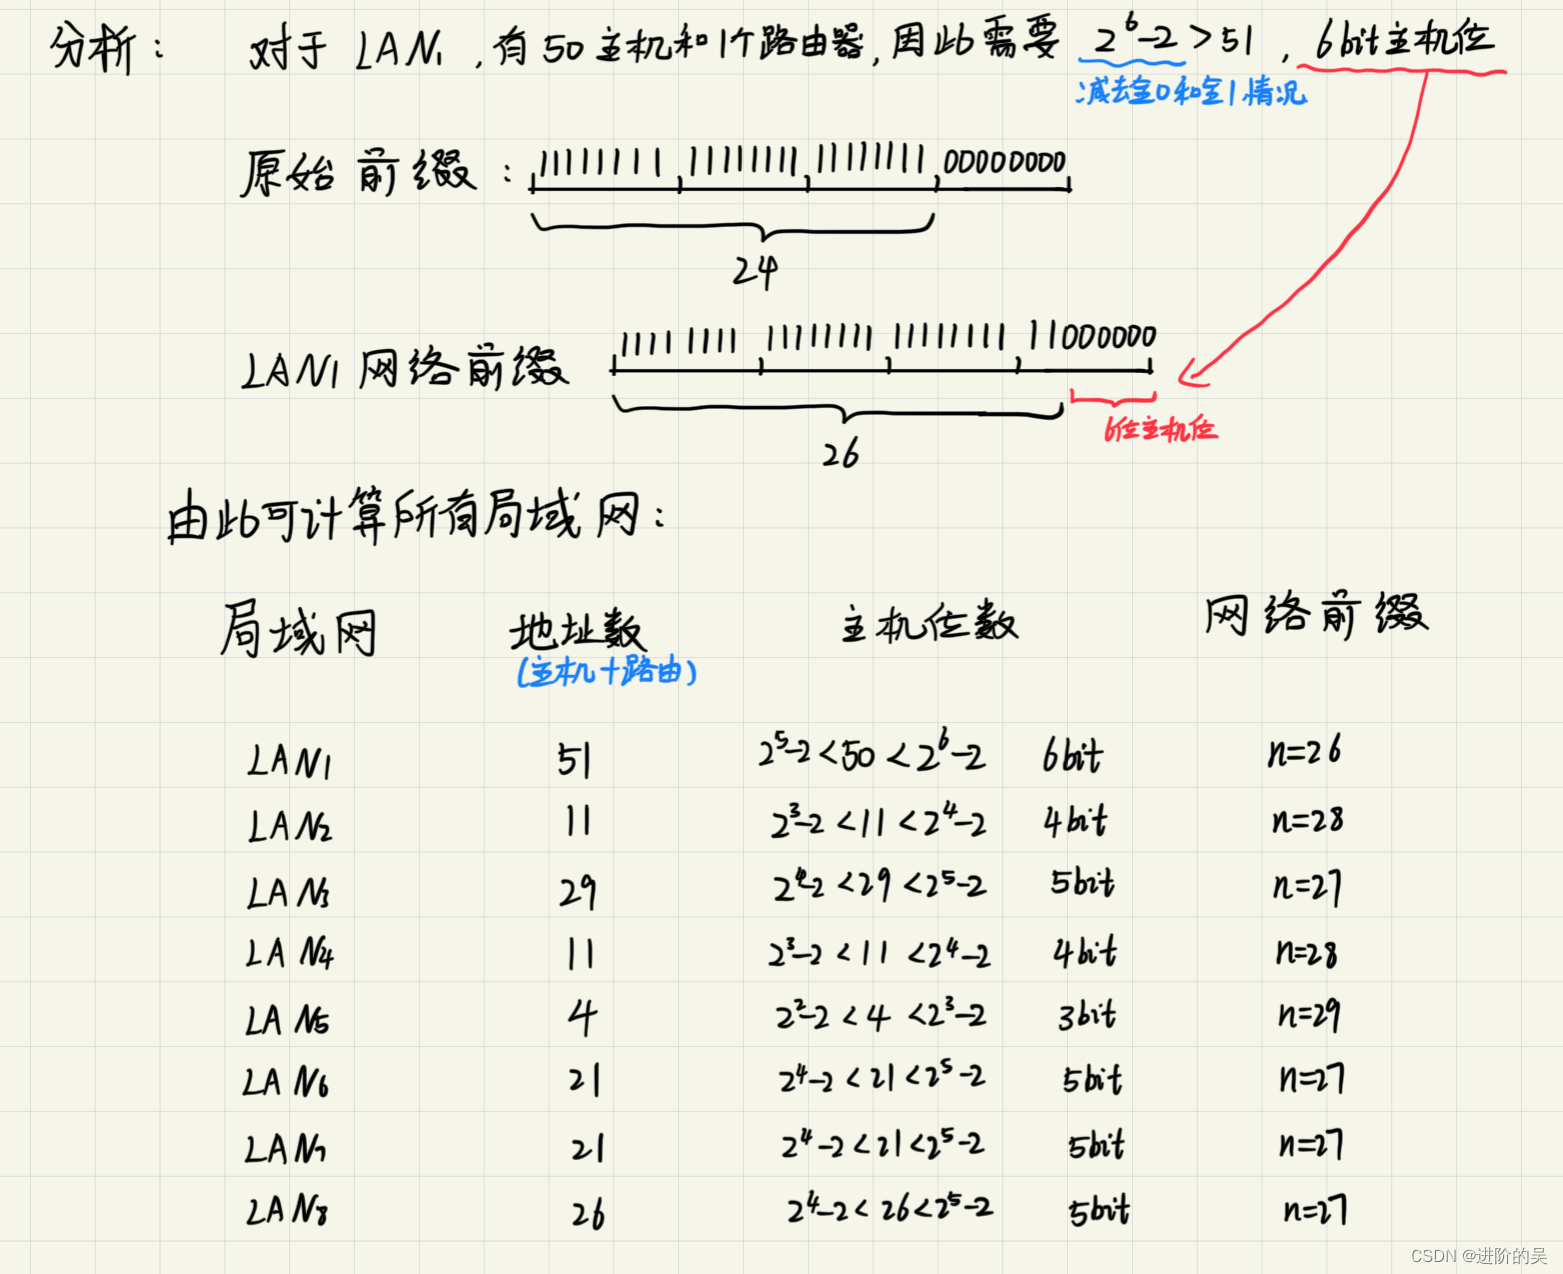 分析： 对于 LAN₁，有50主机和1个路由器，因此需要 2⁶-2 > 51，6bit主机位
减去全0和全1情况
原始前缀： 11111111 11111111 11111111 00000000
24
LAN₁网络前缀 11111111 11111111 11111111 11000000
6位主机位
26
由此可计算所有局域网：
局域网 地址数 主机位数 网络前缀
(主机+路由)
LAN₁ 51 2⁵-2 < 50 < 2⁶-2 6bit n=26
LAN₂ 11 2³-2 < 11 < 2⁴-2 4bit n=28
LAN₃ 29 2⁴-2 < 29 < 2⁵-2 5bit n=27
LAN₄ 11 2³-2 < 11 < 2⁴-2 4bit n=28
LAN₅ 4 2²-2 < 4 < 2³-2 3bit n=29
LAN₆ 21 2⁴-2 < 21 < 2⁵-2 5bit n=27
LAN₇ 21 2⁴-2 < 21 < 2⁵-2 5bit n=27
LAN₈ 26 2⁴-2 < 26 < 2⁵-2 5bit n=27
CSDN @进阶的吴